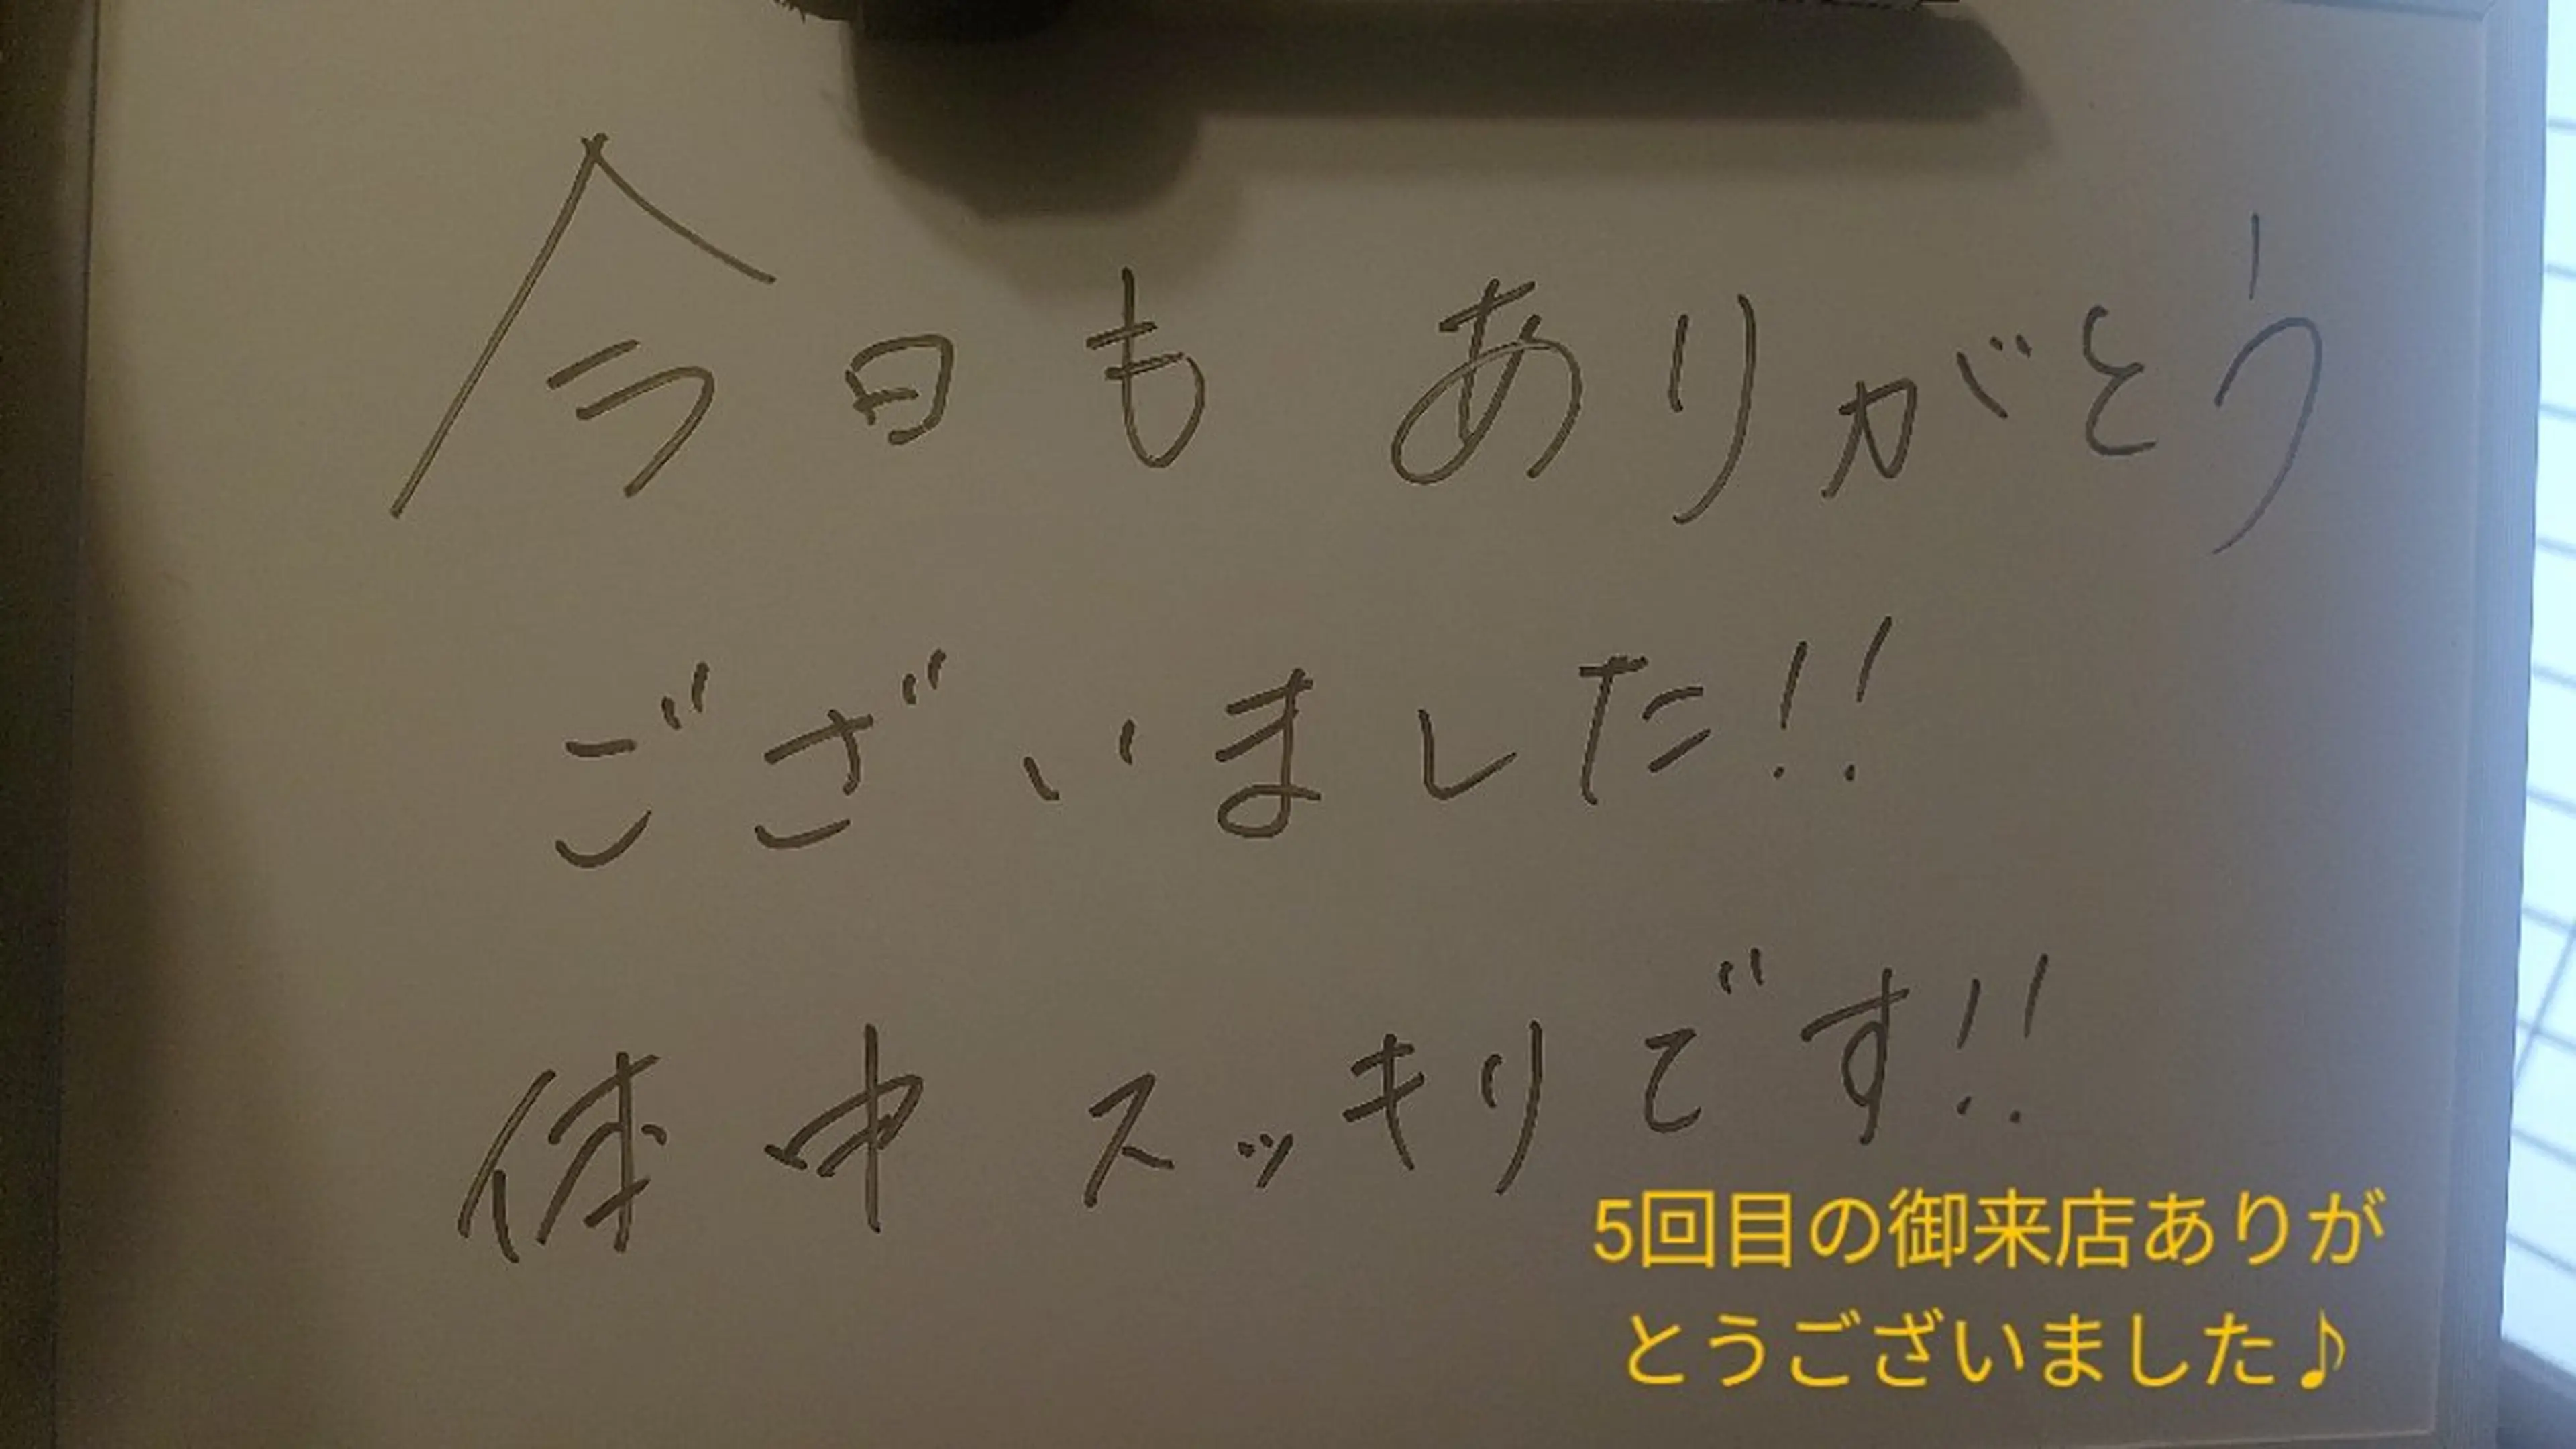 今日もありがとう
ございました!!
体中スッキリです!!
5回目の御来店ありが
とうございました♪